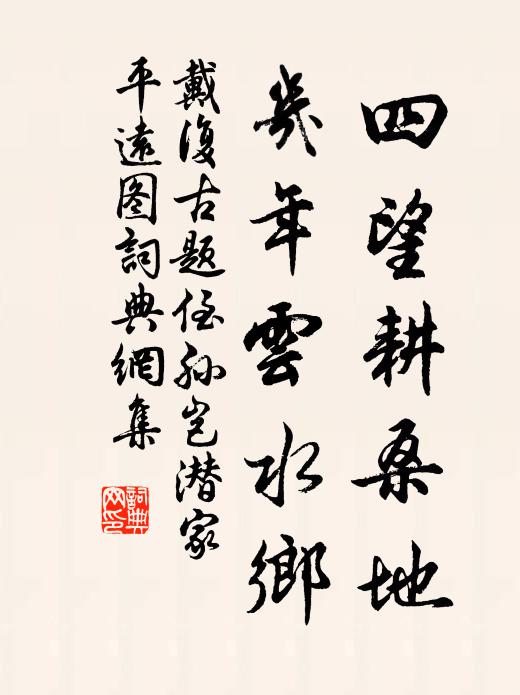 四望耕桑地
幾年雲水鄉
戴復古題侄孫豈潛家
平遠图詞典網集
詞典网印